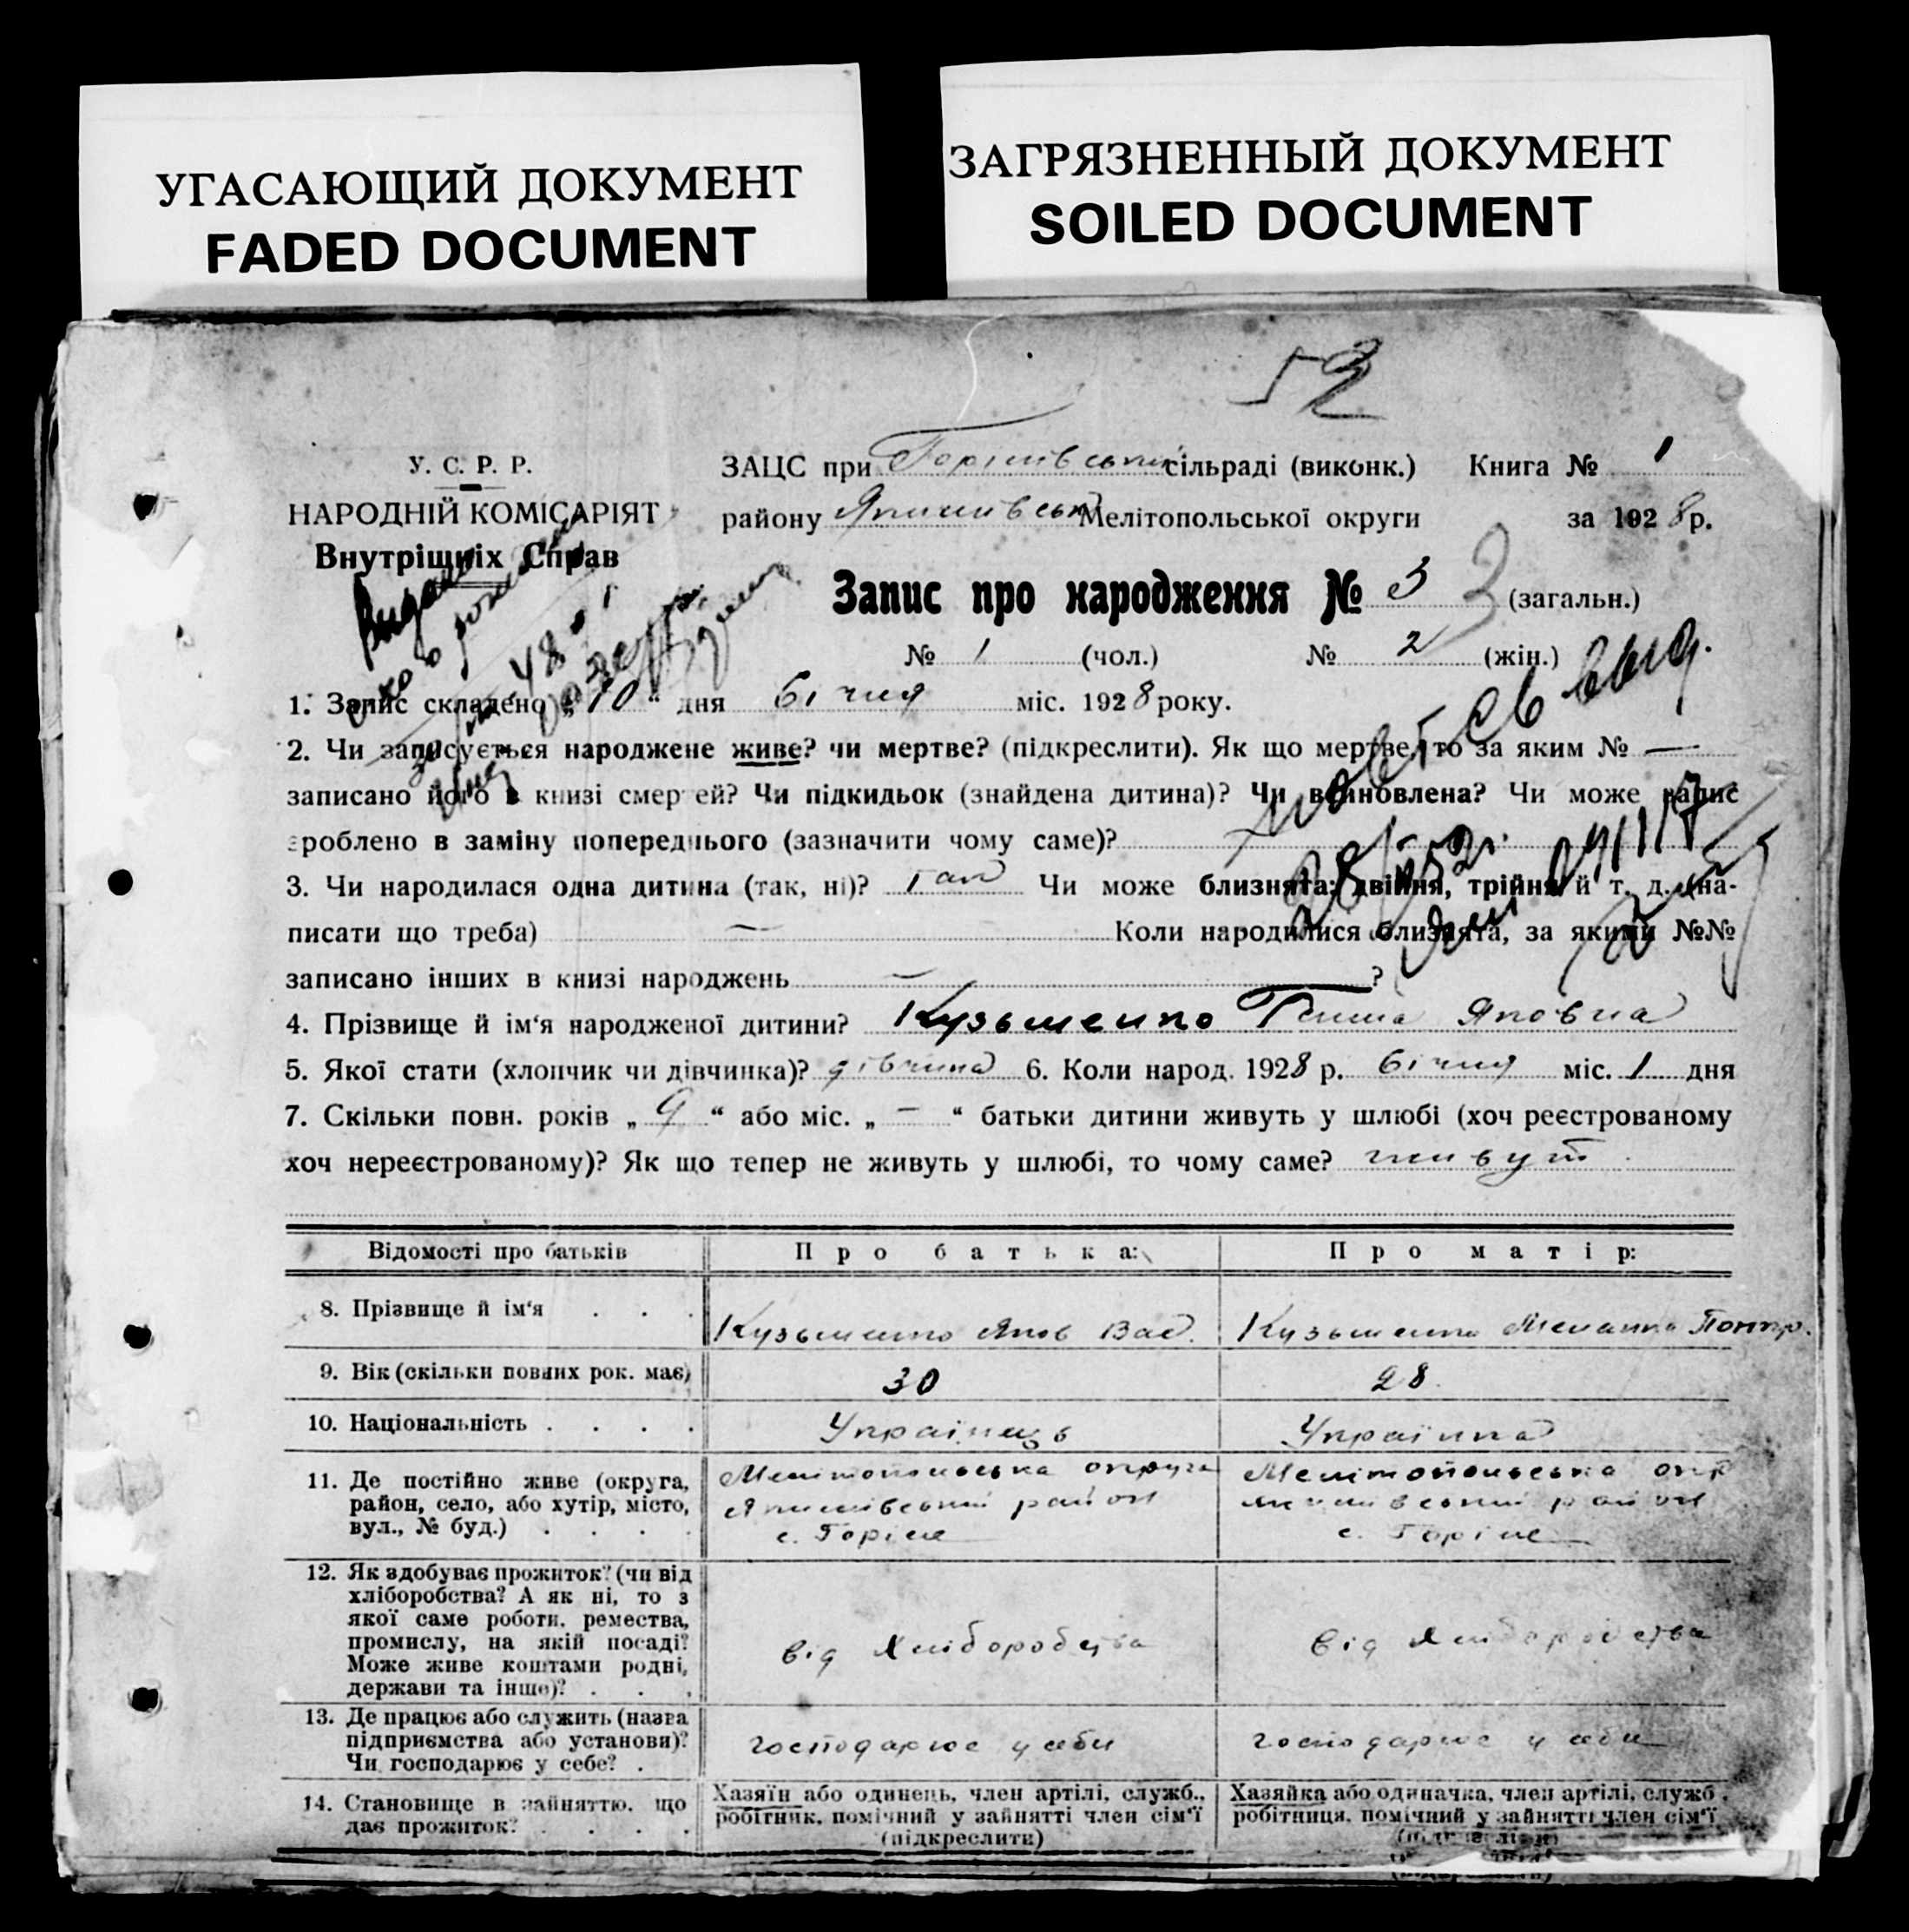 УГАСАЮЩИЙ ДОКУМЕНТ
FADED DOCUMENT
ЗАГРЯЗНЕННЫЙ ДОКУМЕНТ
SOILED DOCUMENT
52
У. С. Р. Р.
НАРОДНІЙ КОМІСАРІЯТ
Внутрішніх Справ
ЗАЦС при Горіпівській сільраді (виконк.) Книга № 1
району Якимівськ Мелітопольської округи за 1928 р.
Запис про народження № 3 3 (загальн.)
№ 1 (чол.) № 2 (жін.)
1. Запис складено „10“ дня січня міс. 1928 року.
2. Чи записується народжене живе? чи мертве? (підкреслити). Як що мертве, то за яким № —
записано його в книзі смертей? Чи підкидьок (знайдена дитина)? Чи вёиновлена? Чи може запис
зроблено в заміну попереднього (зазначити чому саме)?
3. Чи народилася одна дитина (так, ні)? так Чи може близнята: двійня, трійня й т. д. (на-
писати що треба) — Коли народилися близнята, за якими №№
записано інших в книзі народжень — ?
4. Прізвище й ім‘я народженої дитини? Кузьменко Ганна Яковна
5. Якої стати (хлопчик чи дівчинка)? дівчина 6. Коли народ. 1928 р. січня міс. 1 дня
7. Скільки повн. років „ 9 “ або міс. „ — “ батьки дитини живуть у шлюбі (хоч реєстрованому
хоч нереєстрованому)? Як що тепер не живуть у шлюбі, то чому саме? живут
Відомості про батьків Про батька: Про матір:
8. Прізвище й ім‘я . . . Кузьменко Яков Вас. Кузьменко Меланка
9. Вік (скільки повних рок. має) 30 28
10. Національність . . . . Українець Українка
11. Де постійно живе (округа, Мелітопольська округа Мелітопольська окр
район, село, або хутір, місто, Якимівський район Якимівський район
вул., № буд.) . . . . с. Горіле с. Горіле
12. Як здобуває прожиток? (чи від
хліборобства? А як ні, то з
якої саме роботи, ремества,
промислу, на якій посаді? від Хліборобства від Хліборобства
Може живе коштами родні,
держави та інше)? . . .
13. Де працює або служить (назва
підприємства або установи)? господарює у себи господарює у себи
Чи господарює у себе? .
14. Становище в зайняттю, що Хазяїн або одинець, член артілі, служб., Хазяйка або одиначка, член артілі, служб.,
дає прожиток? . . . . робітник, помічний у зайнятті член сім‘ї робітниця, помічний у зайнятті член сім‘ї
(підкреслити)